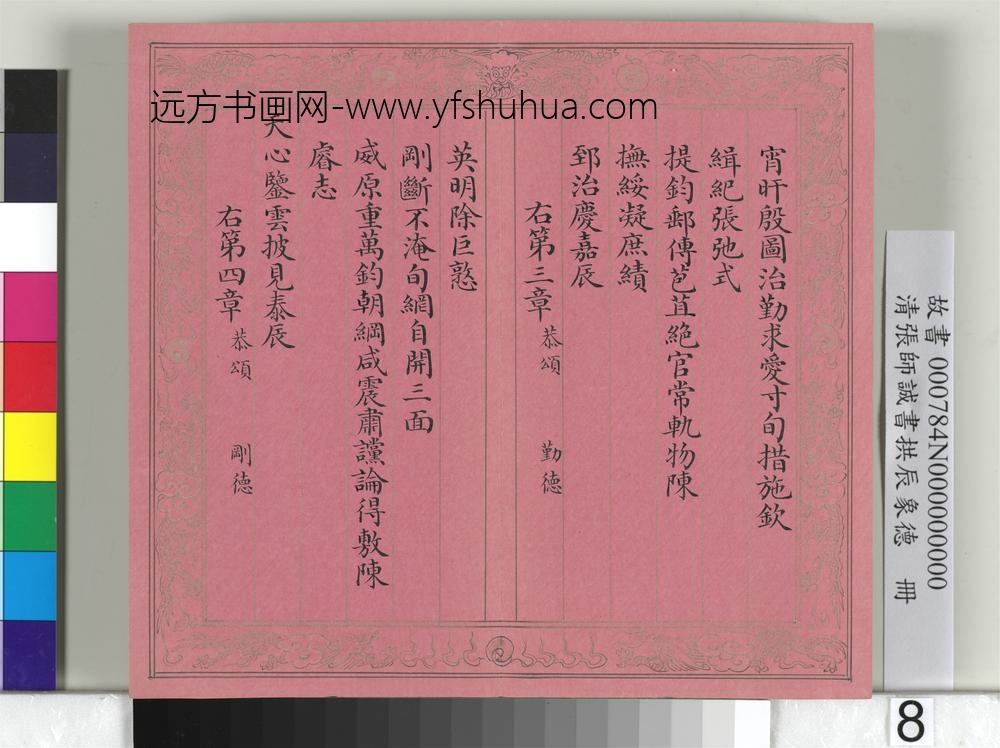 远方书画网-www.yfshuhua.com
宵旰殷圖治勤求愛寸旬措施欽
緝熙張弛式
提鈞郵傳苞苴絶官常軌物陳
撫綏凝庶績
郅治慶嘉辰
右第三章 恭頌 勤德
英明除巨憝
剛斷不淹旬網自開三面
威原重萬鈞朝綱咸震肅讜論得敷陳
睿志
天心鑒雲披見泰辰
右第四章 恭頌 剛德
故書 000784N000000000
清張師誠書拱辰象德 冊
8